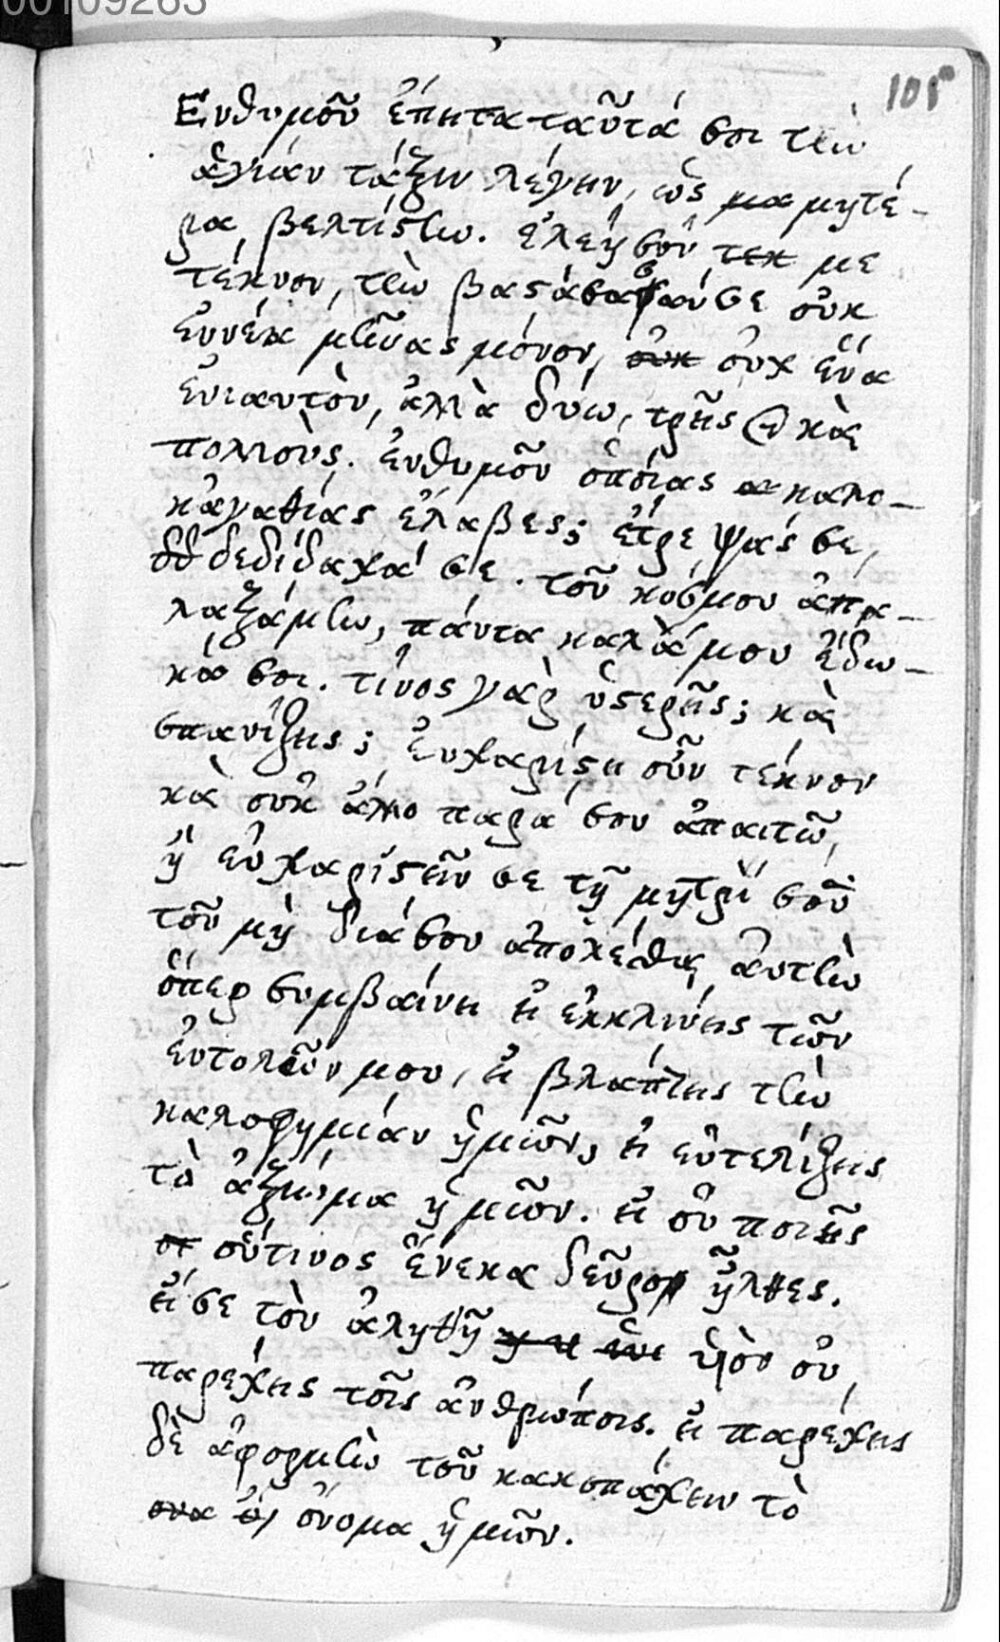 00109263
101
Ενθυμοῦ ἔπειτα ταῦτά σοι τὴν
ἁγίαν τάξιν λέγειν, ὡς μα μητέ-
ρα βελτίστην. ἐλέησον τεκ με
τέκνον, τὴν βαστάσασαν σε οὐκ
ἐννέα μῆνας μόνον, οὐκ οὐχ ἕνα
ἐνιαυτὸν, ἀλλὰ δύω, τρεῖς καὶ
πολλοὺς. ἐνθυμοῦ ὁποίας α καλο-
κἀγαθίας ἔλαβες; ἔτρεψάς σε,
δεδίδαχά σε. τοῦ κόσμου ἀπα-
λαξάμην, πάντα καλὰ μου ἔδω-
κά σοι. τίνος γὰρ ὑστερῆς; καὶ
σπανίζεις; εὐχαρίστει οὖν τέκνον
καὶ οὐκ ἄλλο παρά σου ἀπαιτῶ,
ἢ εὐχαριστεῖν σε τῇ μητρί σοῦ
τοῦ μὴ διά σου ἀπολέσθαι αὐτὴν
ὅπερ συμβαίνει εἰ ἐκκλίνεις τῶν
ἐντολῶν μου, εἰ βλάπτεις τὴν
καλοφημίαν ἡμῶν, εἰ εὐτελίζεις
τὸ ἀξίωμα ἡμῶν. εἰ οὐ ποιεῖς
οὗτινος ἕνεκα δεῦρο ἦλθες.
εἴ σε τὸν ἀληθῆ υἱὸν οὐ
παρέχεις τοῖς ἀνθρώποις. εἰ παρέχεις
δὲ ἀφορμὴν τοῦ κακοπάχειν τὸ
ονα ὄνομα ἡμῶν.